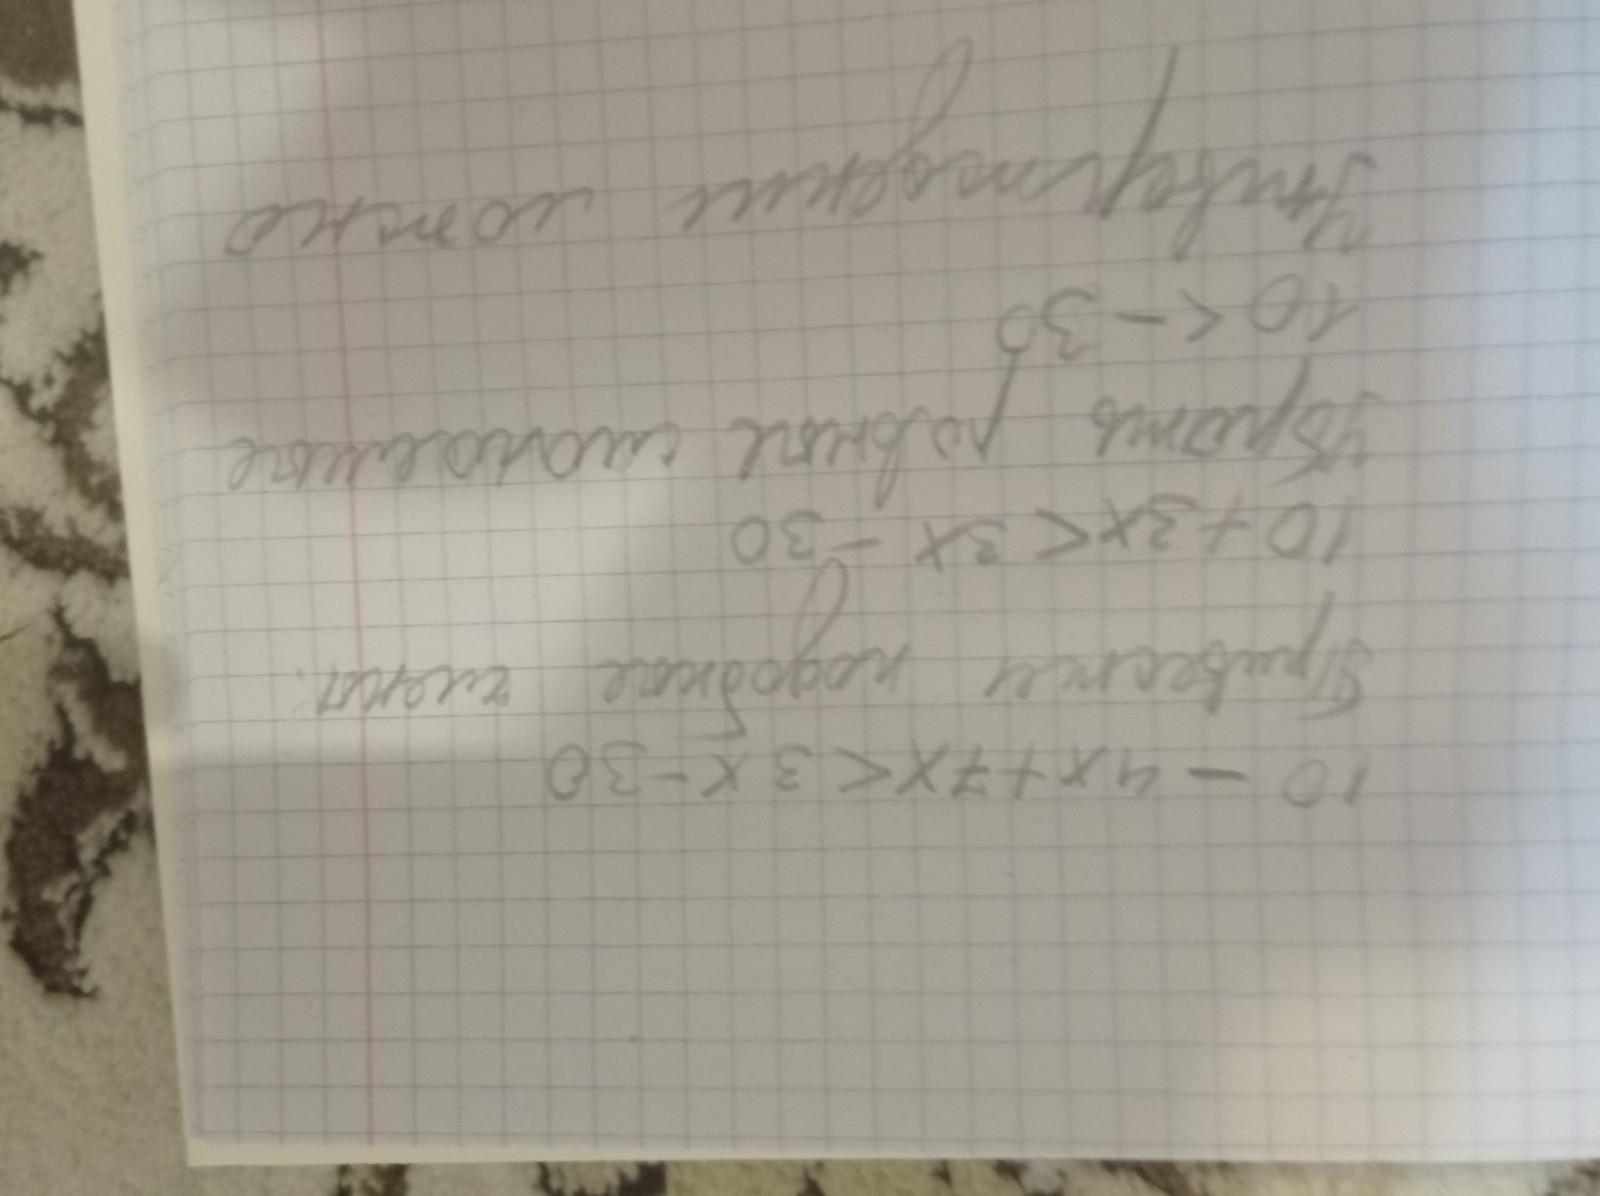 10 - 4x + 7x < 3x - 30
Привести подобные члены.
10 + 3x < 3x - 30
Убрать равные слогаемые
10 < - 30
Утверждении ложно